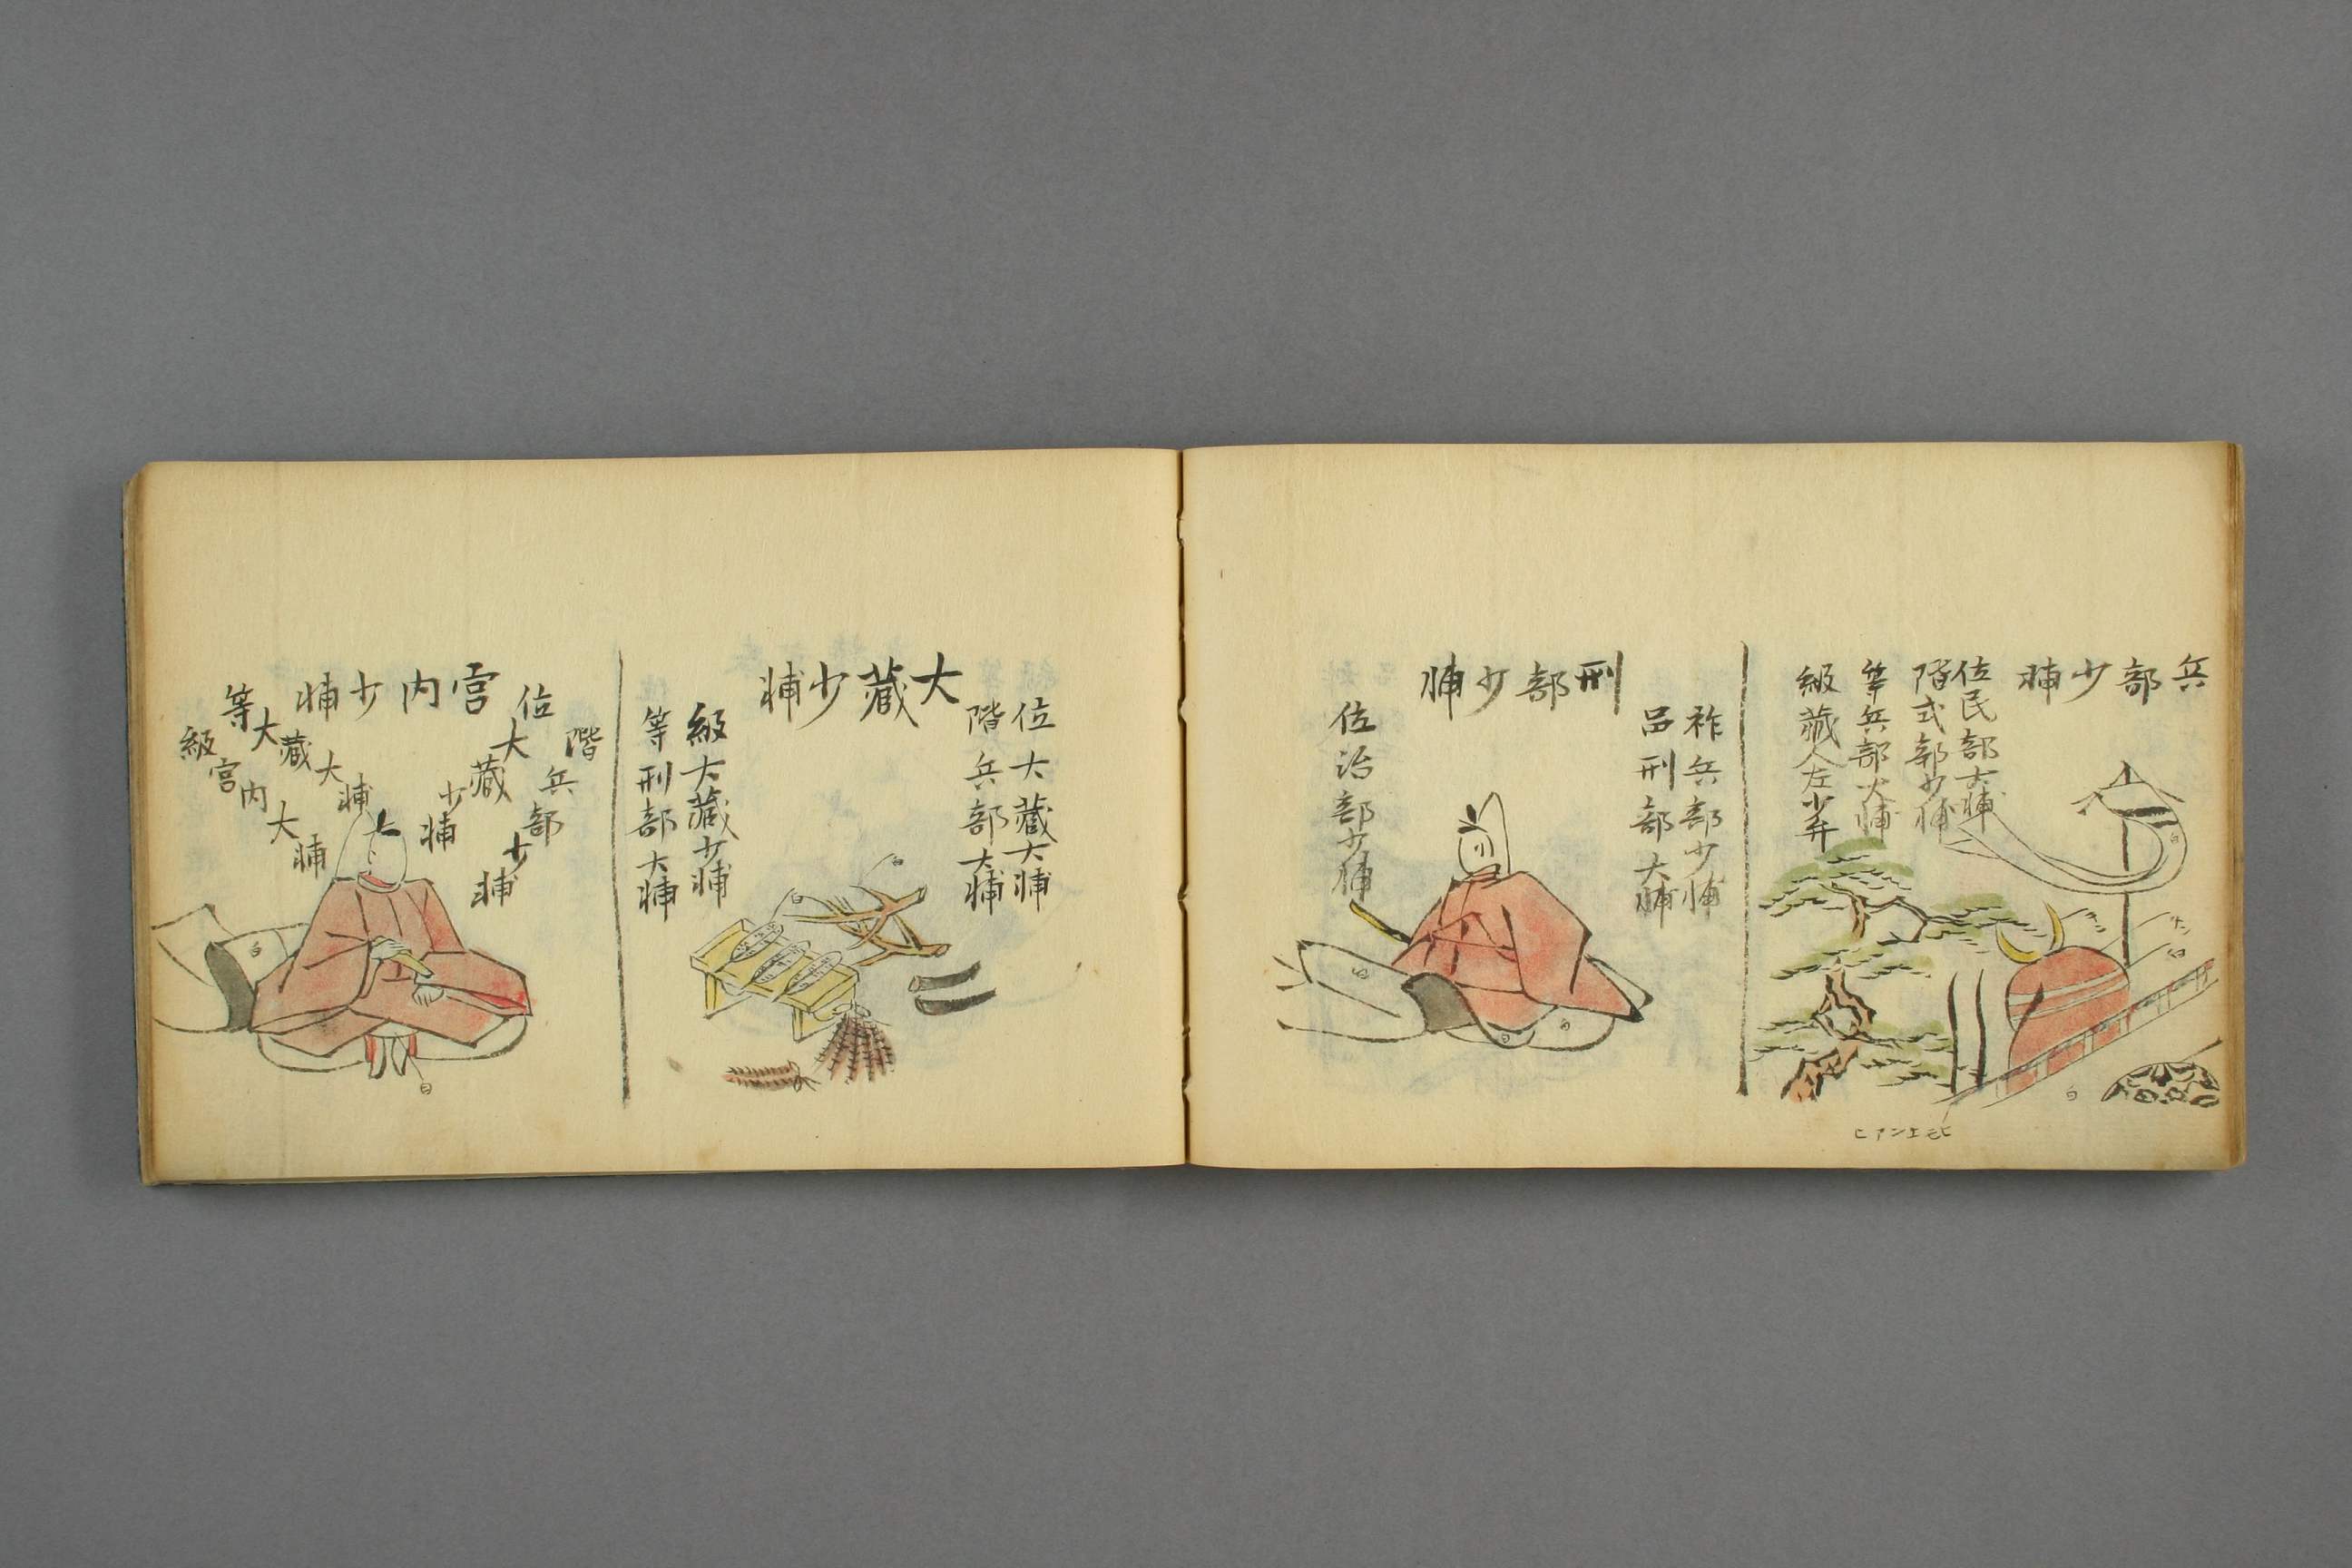 兵部少輔
位民部大輔
階式部少輔
等兵部大輔
級蔵人左少弁
白
白
白
刑部少輔
祚兵部少輔
品刑部大輔
位治部少輔
白
白
白
大藏少輔
位大藏大輔
階兵部大輔
級大藏少輔
等刑部大輔
白
白
宮内少輔
階兵部少輔
位大藏少輔
等大藏大輔
級宮内大輔
白
白